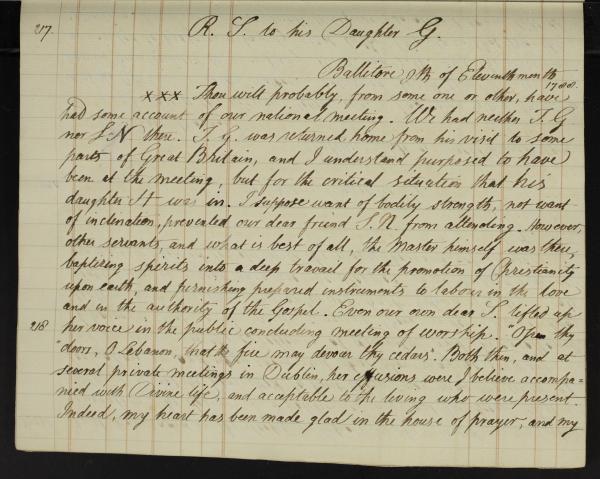 217. R. S. to his Daughter G.
Ballitore 9th of Eleventh month
1788.
xxx Thou will probably, from some one or other, have
had some account of our national meeting. We had neither T. G
nor S N there. T. G. was returned home from his visit to some
parts of Great Britain, and I understand purposed to have
been at the meeting, but for the critical situation that his
daughter H was in. I suppose want of bodily strength, not want
of inclination, prevented our dear friend S. N. from attending. However,
other servants, and what is best of all, the Master himself was there,
baptizing spirits into a deep travail for the promotion of Christianity
upon earth, and furnishing prepared instruments to labour in the love
and in the authority of the Gospel. Even our own dear S. lifted up
218 her voice in the public concluding meeting of worship. "Open thy
"doors, O Lebanon, that the fire may devour thy cedars". Both then, and at
several private meetings in Dublin, her effusions were I believe accompa-
nied with Divine life, and acceptable to the living who were present.
Indeed, my heart has been made glad in the house of prayer, and my